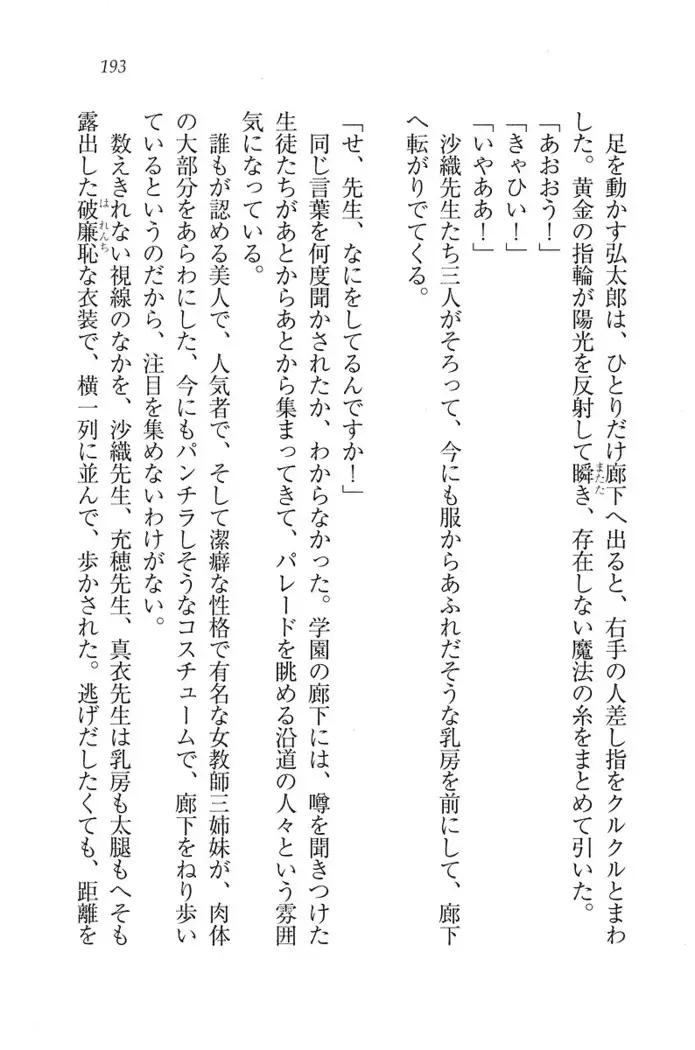 193
足を動かす弘太郎は、ひとりだけ廊下へ出ると、右手の人差し指をクルクルとまわ
した。黄金の指輪が陽光を反射して瞬き、存在しない魔法の糸をまとめて引いた。
「あおおう!」
「きゃひい!」
「いやああ!」
沙織先生たち三人がそろって、今にも服からあふれだそうな乳房を前にして、廊下
へ転がりでてくる。
「せ、先生、なにをしてるんですか!」
同じ言葉を何度聞かされたか、わからなかった。学園の廊下には、噂を聞きつけた
生徒たちがあとからあとから集まってきて、パレードを眺める沿道の人々という雰囲
気になっている。
誰もが認める美人で、人気者で、そして潔癖な性格で有名な女教師三姉妹が、肉体
の大部分をあらわにした、今にもパンチラしそうなコスチュームで、廊下をねり歩い
ているというのだから、注目を集めないわけがない。
数えきれない視線のなかを、沙織先生、充穂先生、真衣先生は乳房も太腿もへそも
露出した破廉恥な衣装で、横一列に並んで、歩かされた。逃げだしたくても、距離を